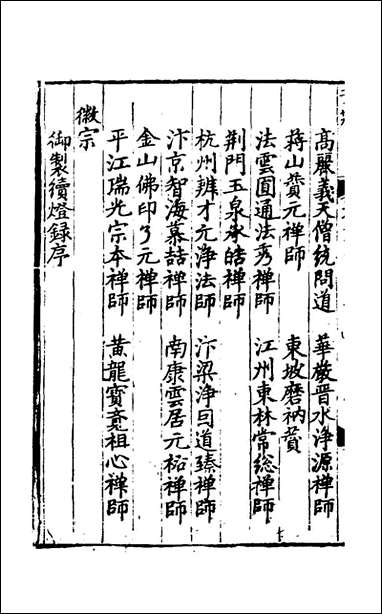 高麗義天僧統問道　華嚴晋水浄源禅師
蒋山賛元禅師　東坡磨衲賛
法雲圓通法秀禅師　江州東林常総禅師
荆門玉泉承皓禅師
杭州辨才元浄法師　汴梁浄因道臻禅師
汴京智海慕喆禅師　南康雲居元祐禅師
金山佛印了元禅師
平江瑞光宗本禅師　黄龍寳覺祖心禅師
徽宗
御製續燈録序